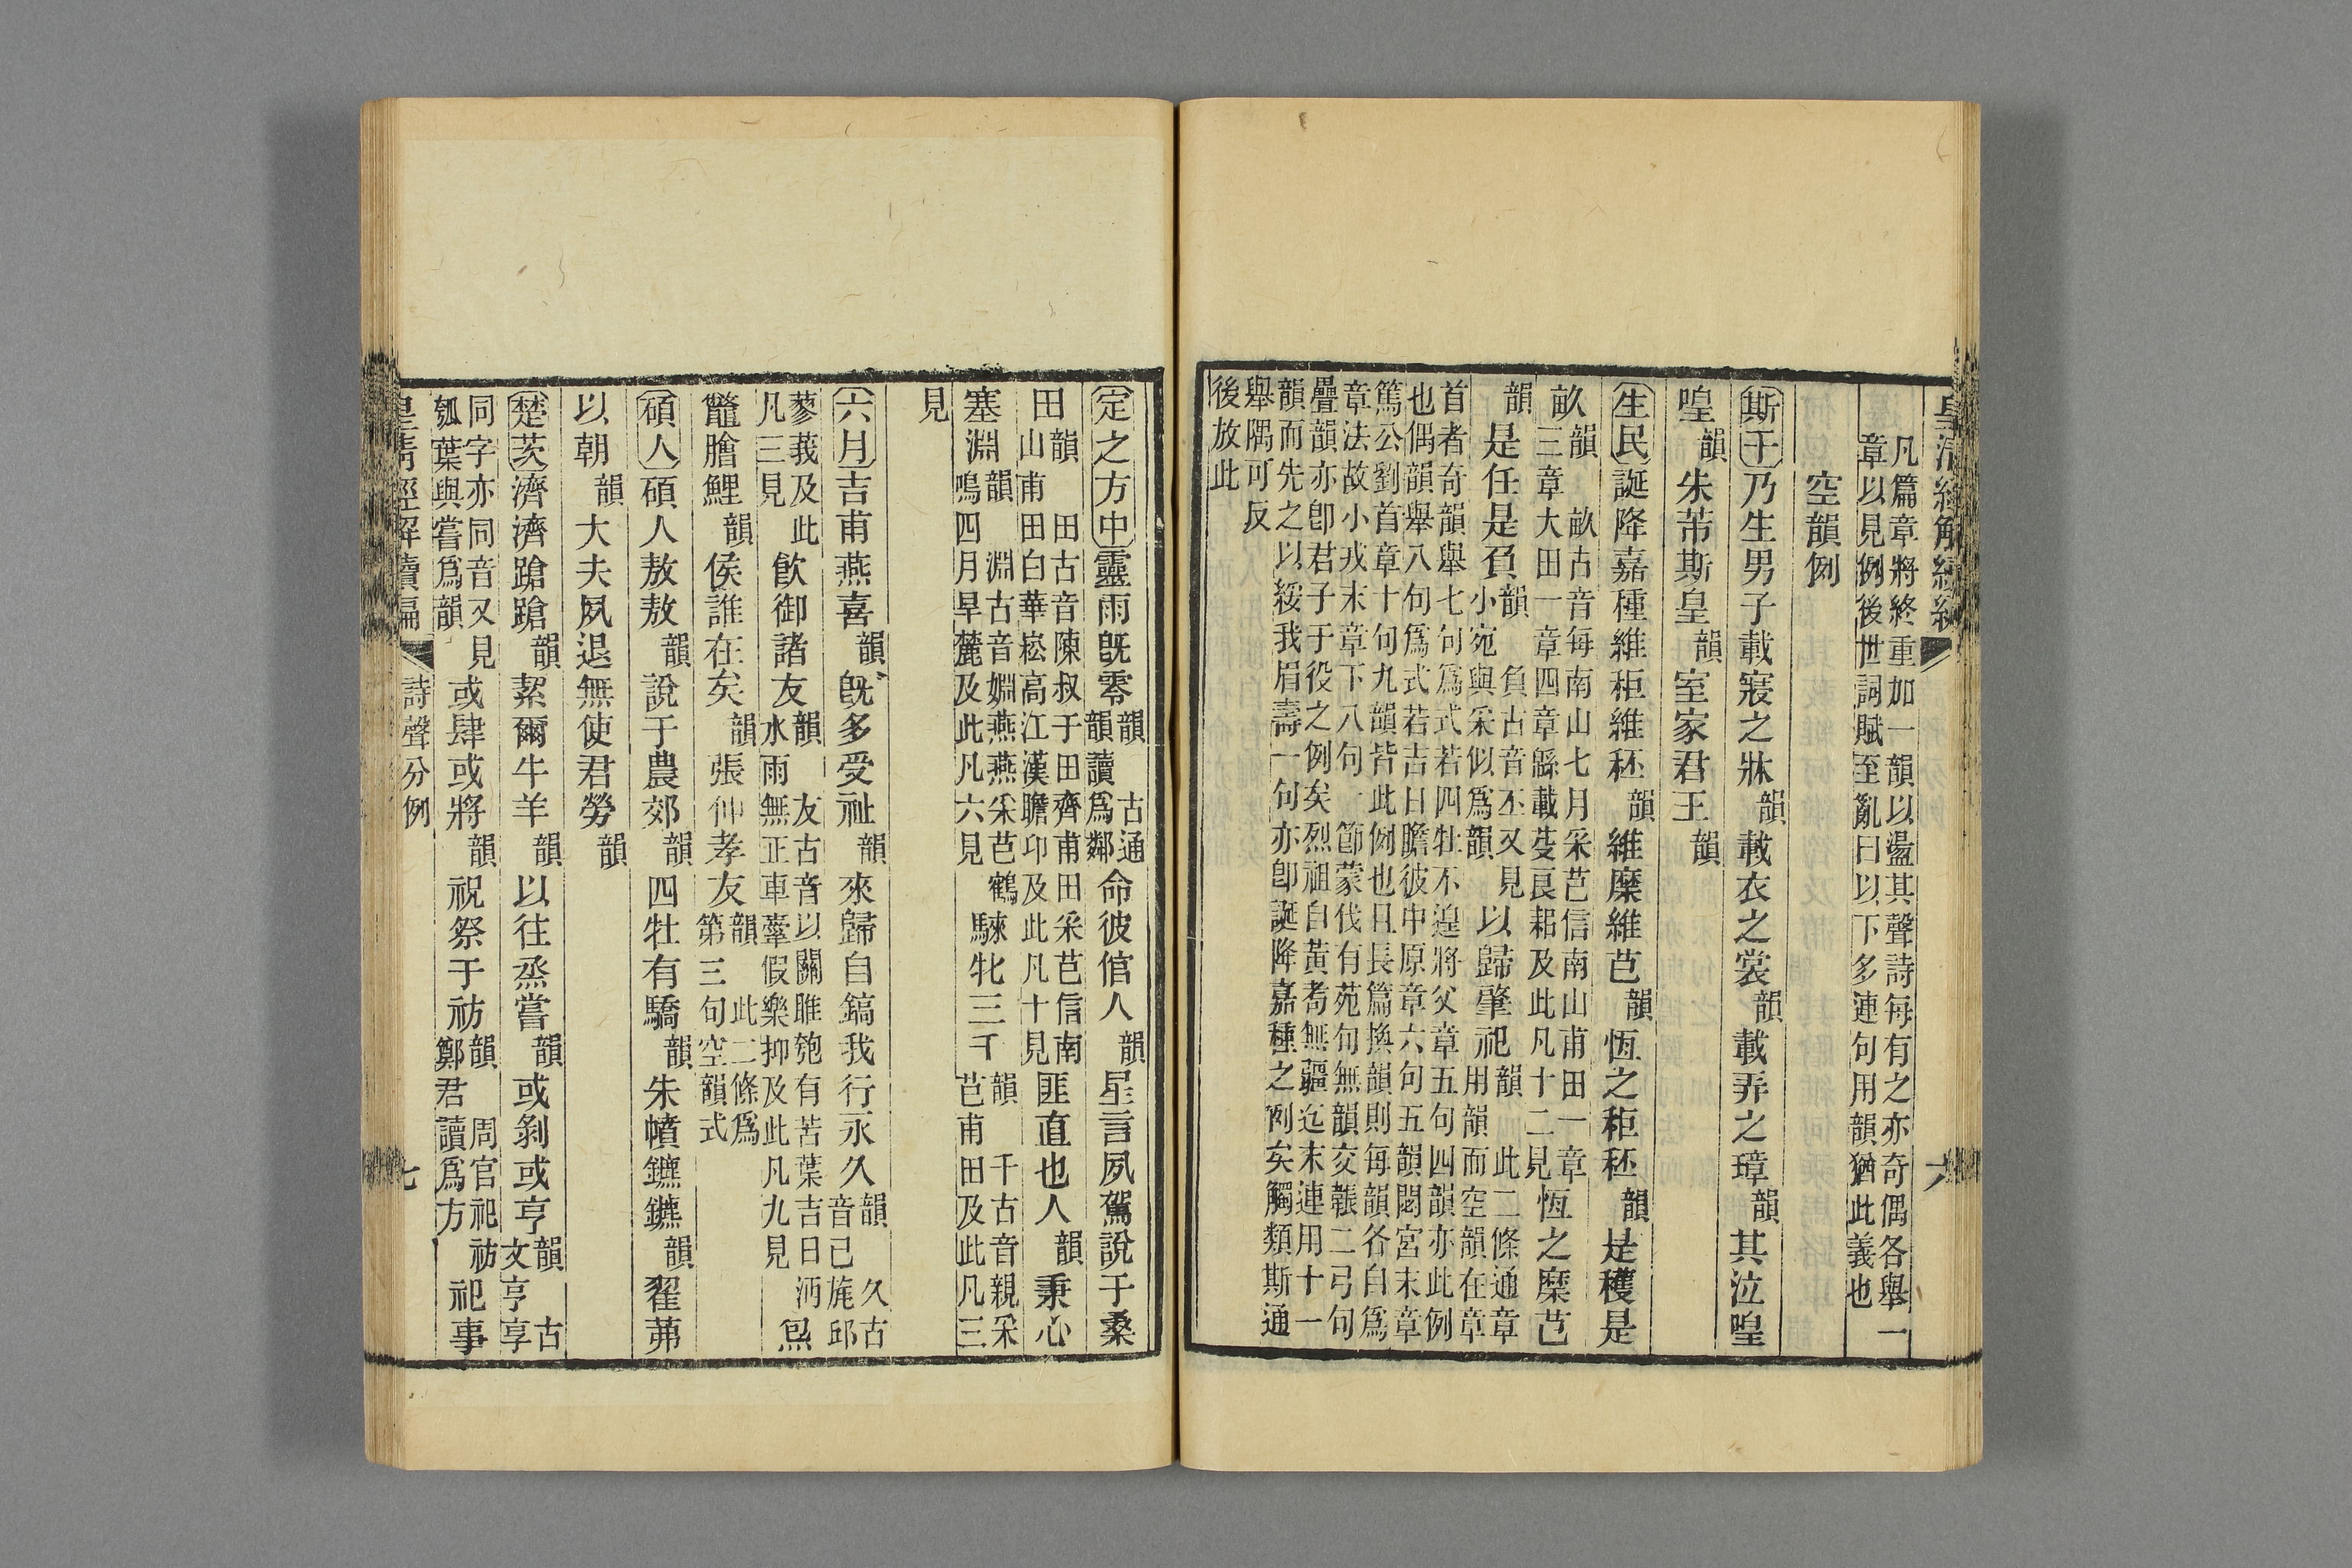 皇清經解續編
六
凡篇章將終重加一韻以盪其聲詩每有之亦奇偶各舉一
章以見例後世詞賦至亂曰以下多連句用韻猶此義也
空韻例
斯干乃生男子載寢之牀韻載衣之裳韻載弄之璋韻其泣喤
喤韻朱芾斯皇韻室家君王韻
生民誕降嘉種維秬維秠韻維穈維芑韻恆之秬秠韻是穫是
畝韻畝古音每南山七月采芑信南山甫田一章
三章大田一章四章緜載芟良耜及此凡十二見恆之穈芑
韻是任是負韻負古音丕又見
小宛與采似爲韻以歸肇祀韻此二條通章
用韻而空韻在章
首者奇韻舉七句爲式若四牡不遑將父章五句四韻亦此例
也偶韻舉八句爲式若吉日瞻彼中原章六句五韻閟宮末章
篤公劉首章十句九韻皆此例也且長篇換韻則每韻各自爲
章法故小戎末章下八句一節蒙伐有苑句無韻交韔二弓句
疊韻亦卽君子于役之例矣烈祖自黃耇無疆迄末連用十一
韻而先之以綏我眉壽一句亦卽誕降嘉種之例矣觸類斯通
舉隅可反
後放此
定之方中靈雨旣零韻古通
韻讀爲鄰命彼倌人韻星言夙駕說于桑
田韻田古音陳叔于田齊甫田采芑信南
山甫田白華崧高江漢瞻卬及此凡十見匪直也人韻秉心
塞淵韻淵古音㛰燕燕采芑鶴
鳴四月旱麓及此凡六見騋牝三千韻千古音親采
芑甫田及此凡三
見
六月吉甫燕喜韻旣多受祉韻來歸自鎬我行永久韻久古
音已旄邱
蓼莪及此
凡三見飮御諸友韻友古音以關雎匏有苦葉吉日沔
水雨無正車舝假樂抑及此凡九見炰
鼈膾鯉韻侯誰在矣韻張仲孝友韻此二條爲
第三句空韻式
碩人碩人敖敖韻說于農郊韻四牡有驕韻朱幩鑣鑣韻翟茀
以朝韻大夫夙退無使君勞韻
楚茨濟濟蹌蹌韻絜爾牛羊韻以往烝嘗韻或剝或亨韻古
文亨享
同字亦同音又見
瓠葉與嘗爲韻或肆或將韻祝祭于祊韻周官祀祊
鄭君讀爲方祀事
皇淸經解續編
詩聲分例
七